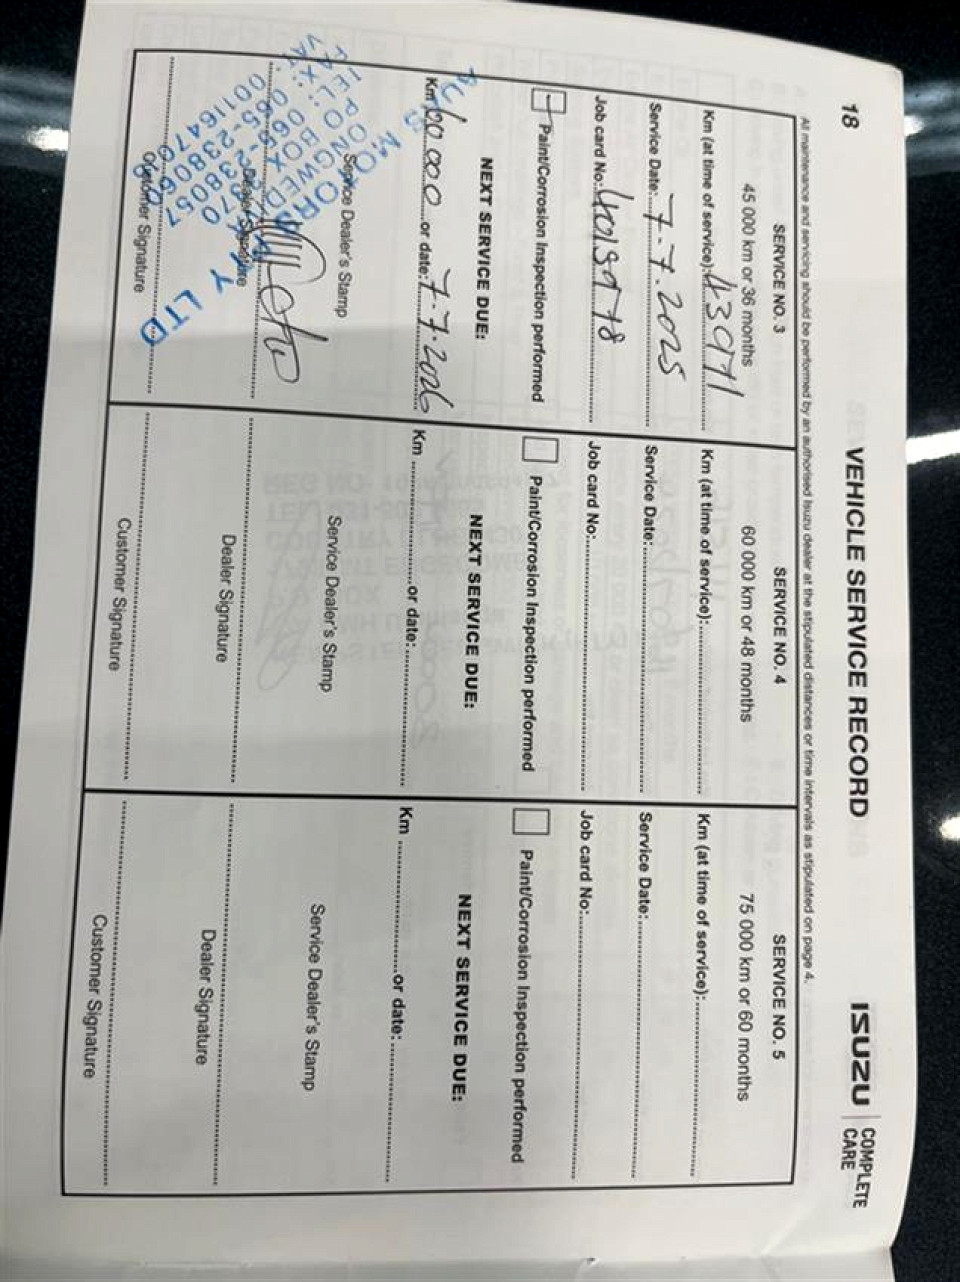 18
VEHICLE SERVICE RECORD
ISUZU COMPLETE CARE
All maintenance and servicing should be performed by an authorised Isuzu dealer at the stipulated distances or time intervals as stipulated on page 4.
SERVICE NO. 3
45 000 km or 36 months
Km (at time of service):
Service Date: 7.7.2025
Job card No:
Paint/Corrosion Inspection performed
NEXT SERVICE DUE:
Km 60 000 or date: 7.7.2026
Service Dealer's Stamp
Dealer Signature
Customer Signature
MOTORS
LTD
PO BOX
TEL: 065-238057
FAX: 065-238068
VAT:
SERVICE NO. 4
60 000 km or 48 months
Km (at time of service):
Service Date:
Job card No:
Paint/Corrosion Inspection performed
NEXT SERVICE DUE:
Km or date:
Service Dealer's Stamp
Dealer Signature
Customer Signature
SERVICE NO. 5
75 000 km or 60 months
Km (at time of service):
Service Date:
Job card No:
Paint/Corrosion Inspection performed
NEXT SERVICE DUE:
Km or date:
Service Dealer's Stamp
Dealer Signature
Customer Signature